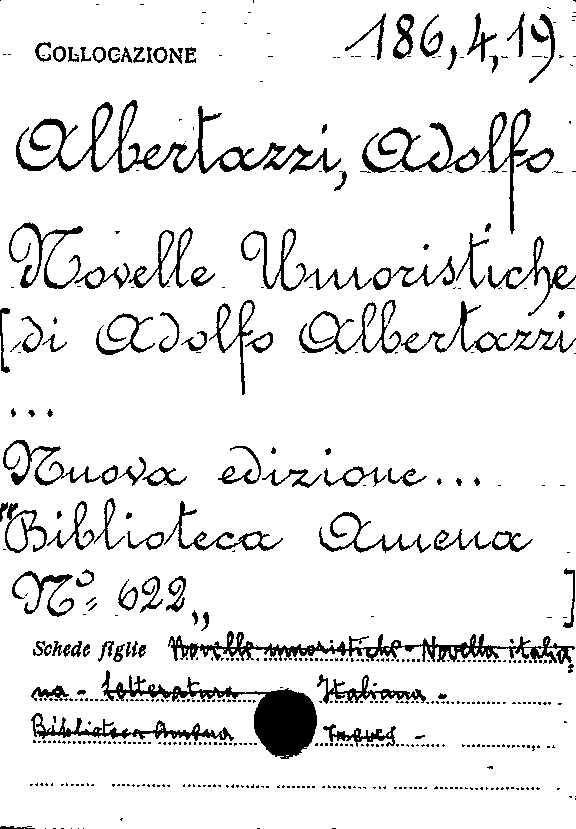 COLLOCAZIONE 186,4,19
Albertazzi, Adolfo
Novelle Umoristiche
[di Adolfo Albertazzi
...
Nuova edizione...
"Biblioteca Amena
Nº 622„ ]
Schede figlie Novelle umoristiche - Novella italia
na - Letteratura Italiana -
Biblioteca Amena Treves -